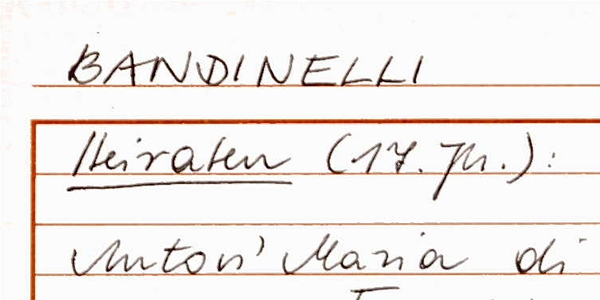 BANDINELLI
Heiraten (17. Jh.):
Anton' Maria di